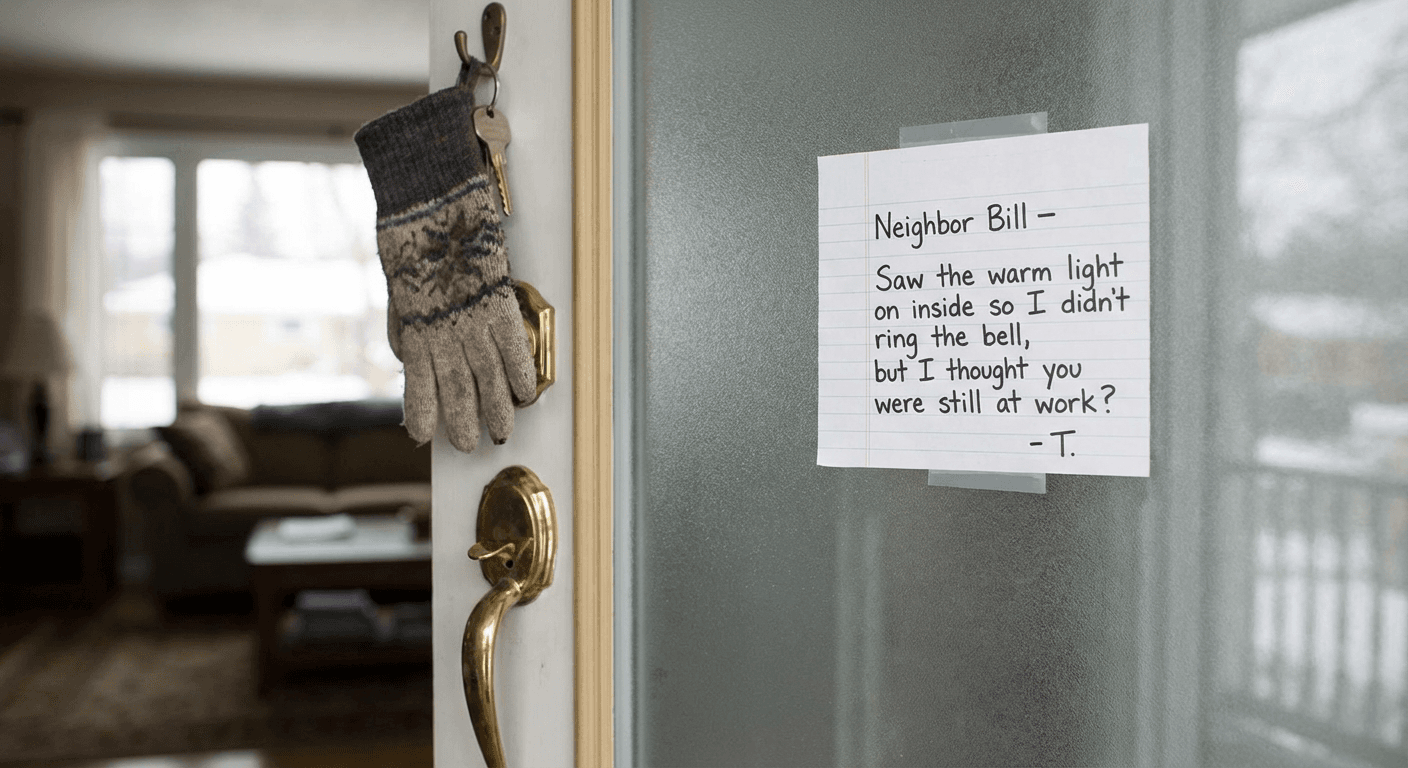 Neighbor Bill –
Saw the warm light
on inside so I didn't
ring the bell,
but I thought you
were still at work?
- T.